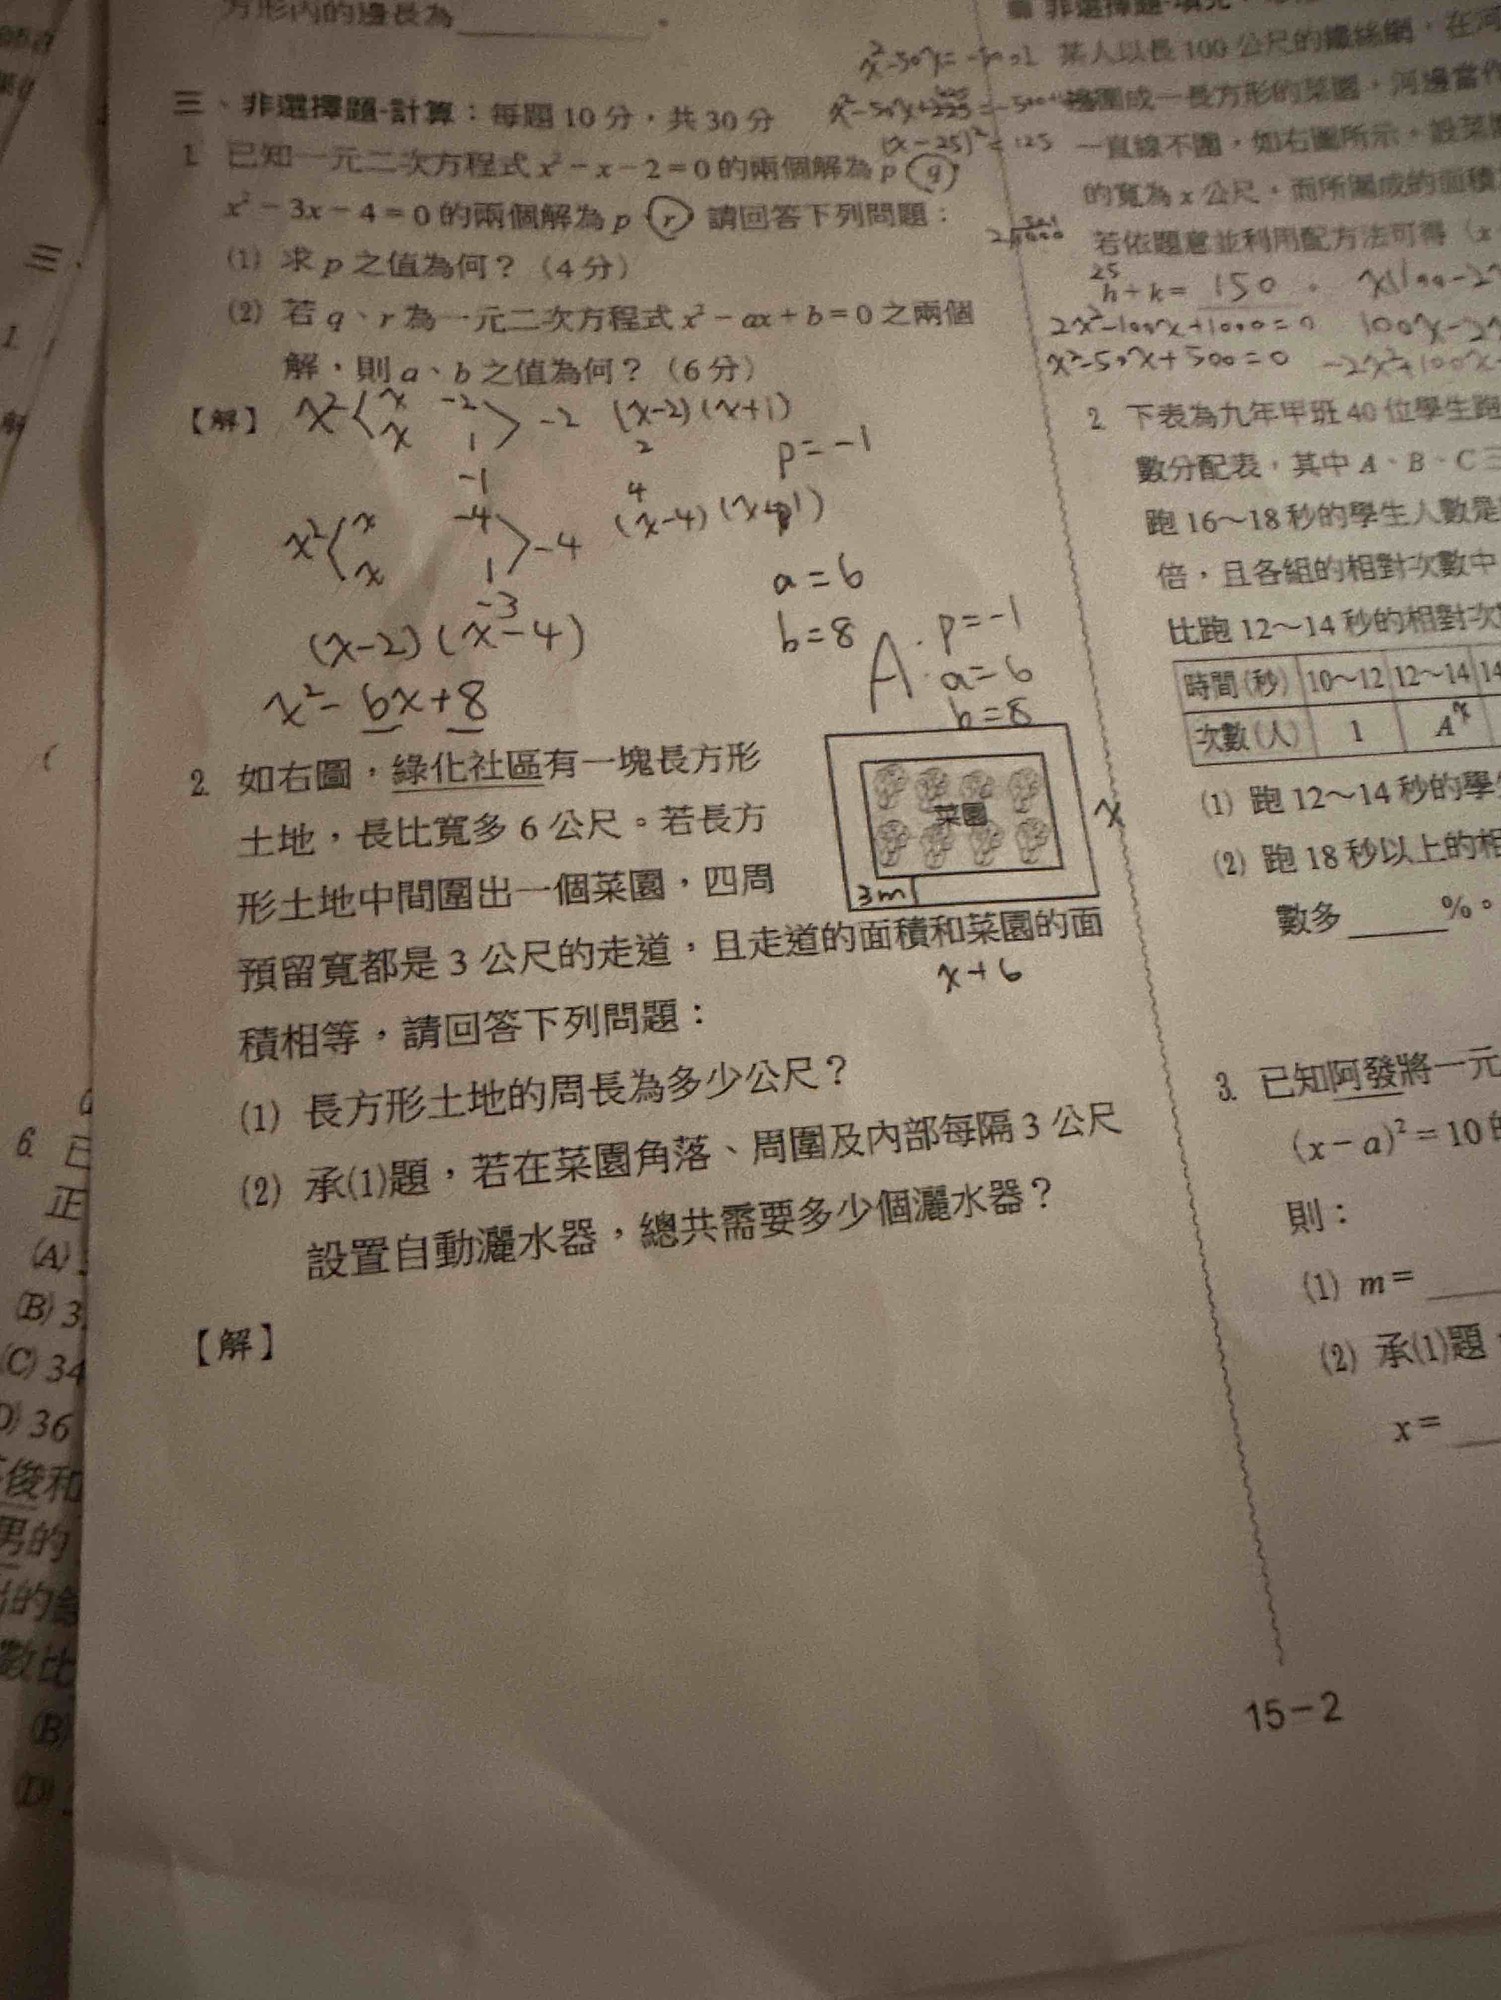 方形內的邊長為
三、非選擇題-計算：每題 10 分，共 30 分
1. 已知一元二次方程式 x² − x − 2 = 0 的兩個解為 p、q，
x² − 3x − 4 = 0 的兩個解為 p、r，請回答下列問題：
(1) 求 p 之值為何？（4 分）
(2) 若 q、r 為一元二次方程式 x² − ax + b = 0 之兩個
解，則 a、b 之值為何？（6 分）
【解】
x² x -2 -2 (x-2)(x+1)
x 1 2
-1 p=-1
4
x² x -4 -4 (x-4)(x+1)
x 1
-3
a=6
b=8
(x-2)(x-4)
x²-6x+8
A: p=-1
a=6
b=8
2. 如右圖，綠化社區有一塊長方形
土地，長比寬多 6 公尺。若長方
形土地中間圍出一個菜園，四周
預留寬都是 3 公尺的走道，且走道的面積和菜園的面
積相等，請回答下列問題：
菜園
3m
x
x+6
(1) 長方形土地的周長為多少公尺？
(2) 承(1)題，若在菜園角落、周圍及內部每隔 3 公尺
設置自動灑水器，總共需要多少個灑水器？
【解】
(x-25)²=125
某人以長 100 公尺的鐵絲網，在河
邊圍成一長方形的菜園，河邊當作
一直線不圍，如右圖所示。設菜
的寬為 x 公尺，而所圍成的面積
若依題意並利用配方法可得（x
25
h + k = 150
2x²-100x+1000=0
x²-50x+500=0
2. 下表為九年甲班 40 位學生跑
數分配表，其中 A、B、C 三
跑 16～18 秒的學生人數是
倍，且各組的相對次數中
比跑 12～14 秒的相對次
時間(秒) 10～12 12～14 14
次數(人) 1 A x
(1) 跑 12～14 秒的學
(2) 跑 18 秒以上的相
數多 %。
3. 已知阿發將一元
(x − a)² = 10 的
則：
(1) m =
(2) 承(1)題
x =
15－2
三、
1.
6. 已
正
(A)
(B) 3
(C) 34
36
俊和
男的
數比
(B)
(D)